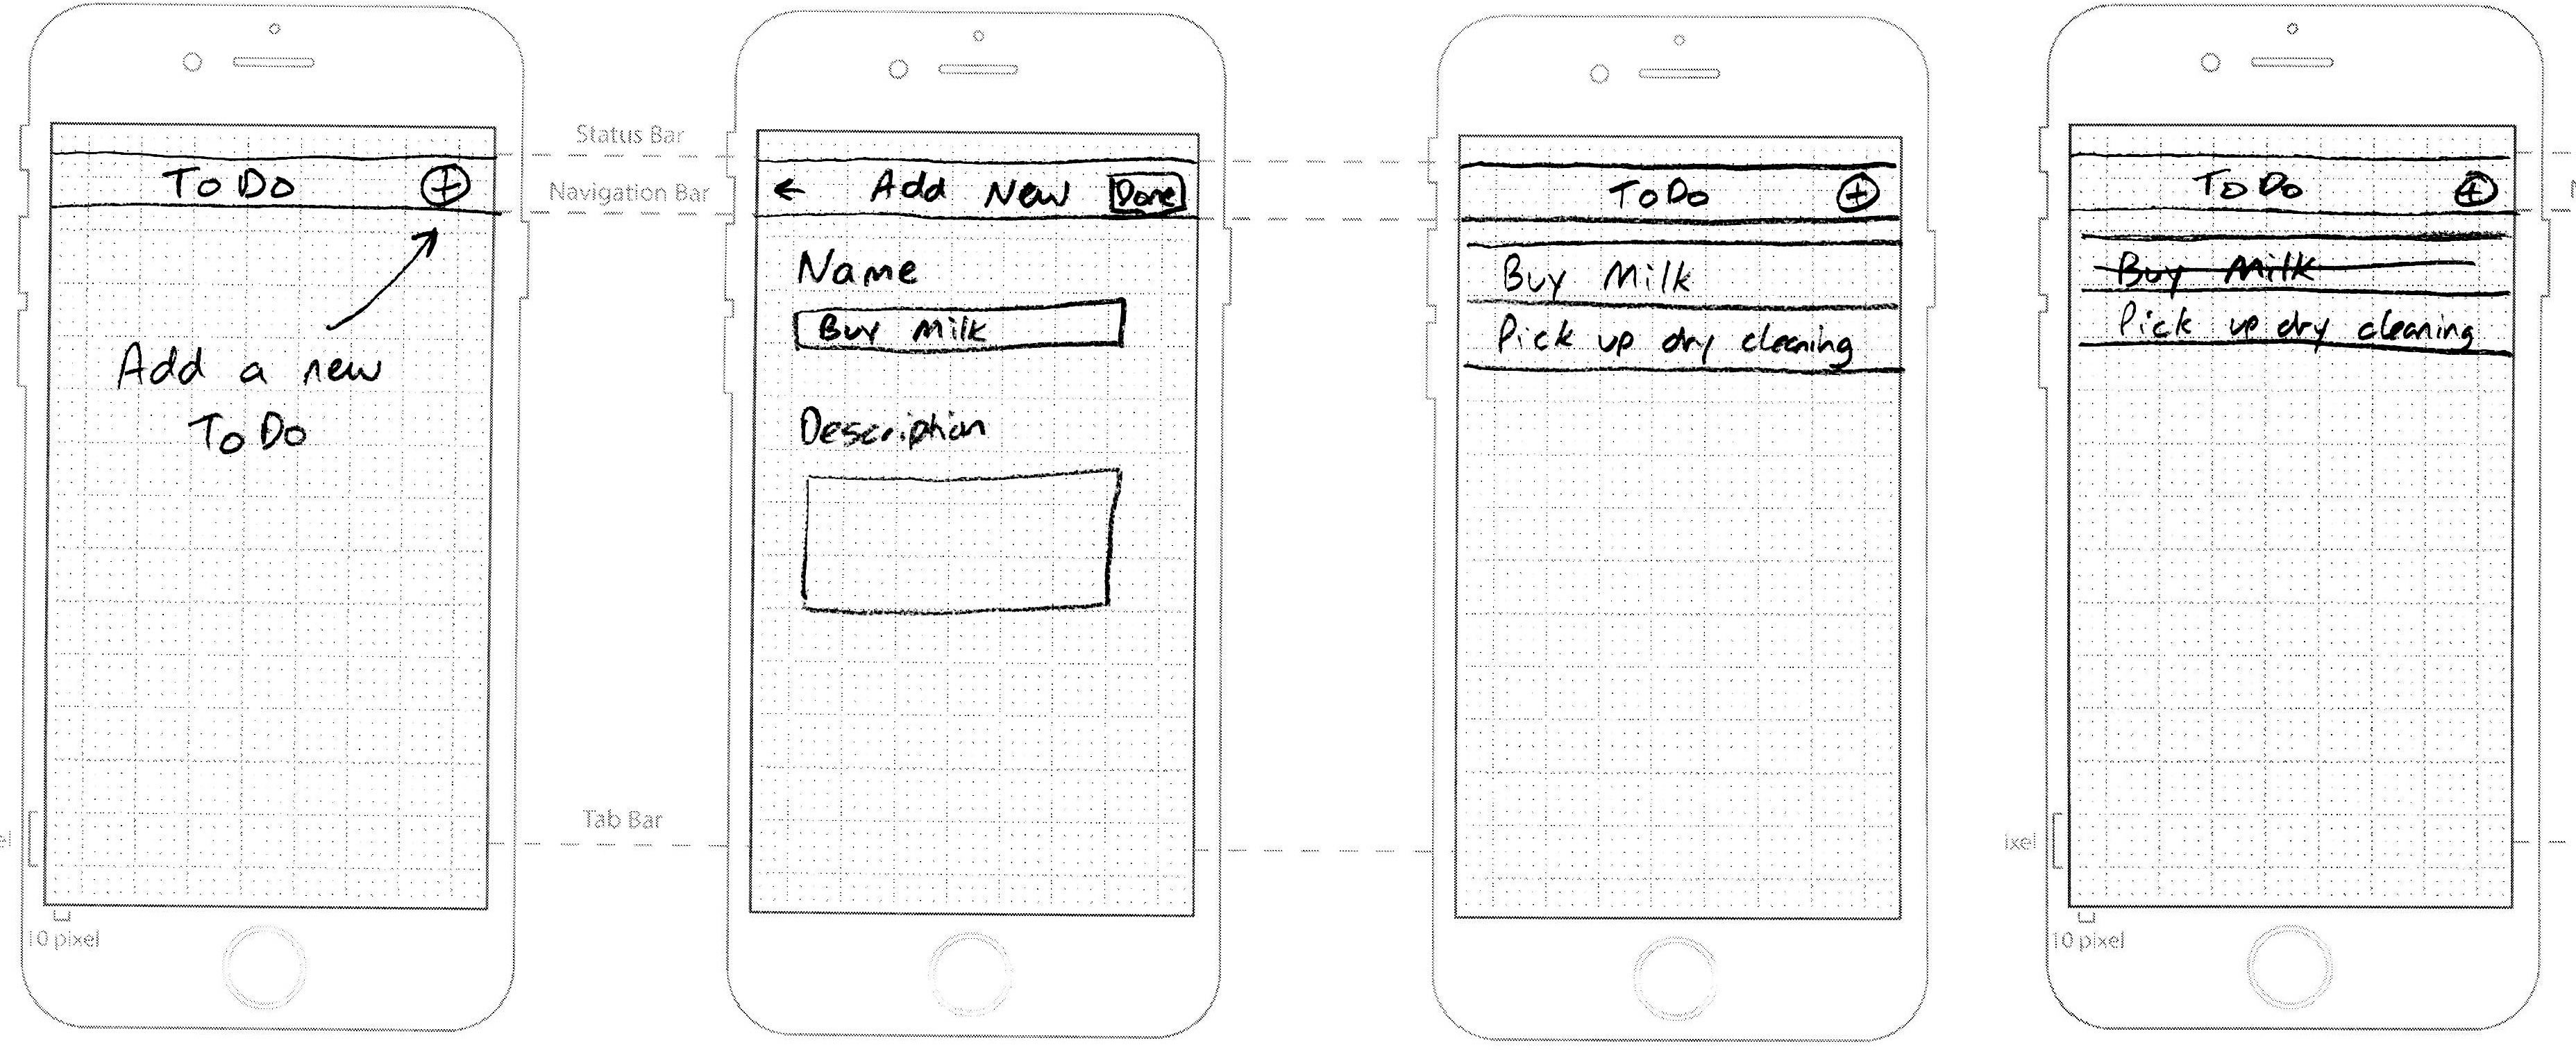 ToDo
Add a new
ToDo
10 pixel
Status Bar
Navigation Bar
Tab Bar
← Add New Done
Name
Buy Milk
Description
ToDo
Buy Milk
Pick up dry cleaning
ToDo
Buy Milk
Pick up dry cleaning
ixel
10 pixel
el